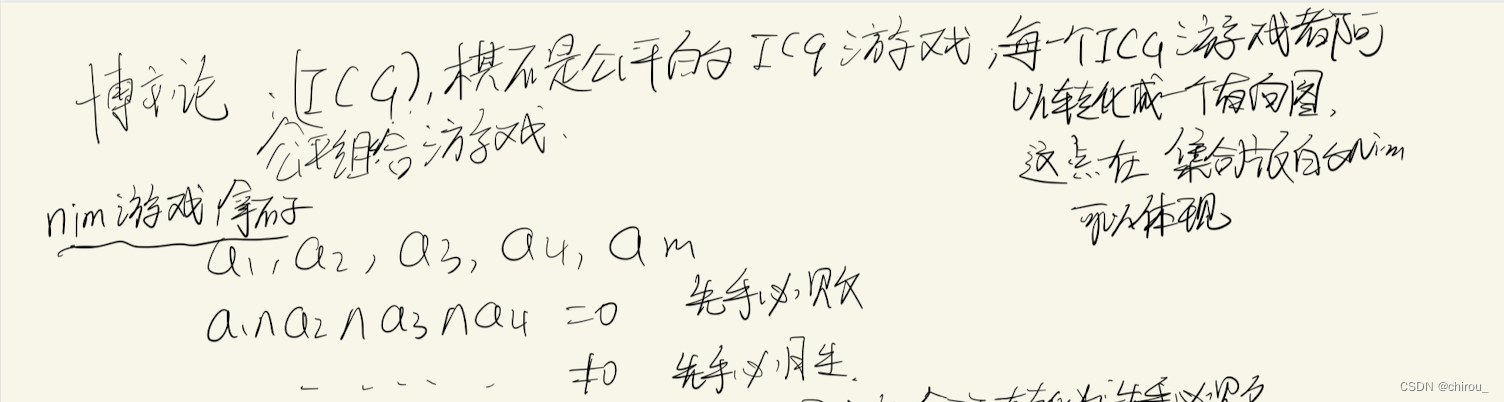 博弈论:(ICG),棋不是公平的ICG游戏,每一个ICG游戏都可
以转化成一个有向图,
公平组合游戏.
这点在集合版的Nim
可以体现
nim游戏拿石子
a1,a2,a3,a4,am
a1∩a2∩a3∩a4 =0 先手必败
≠0 先手必胜.
先手必败
CSDN @chirou_